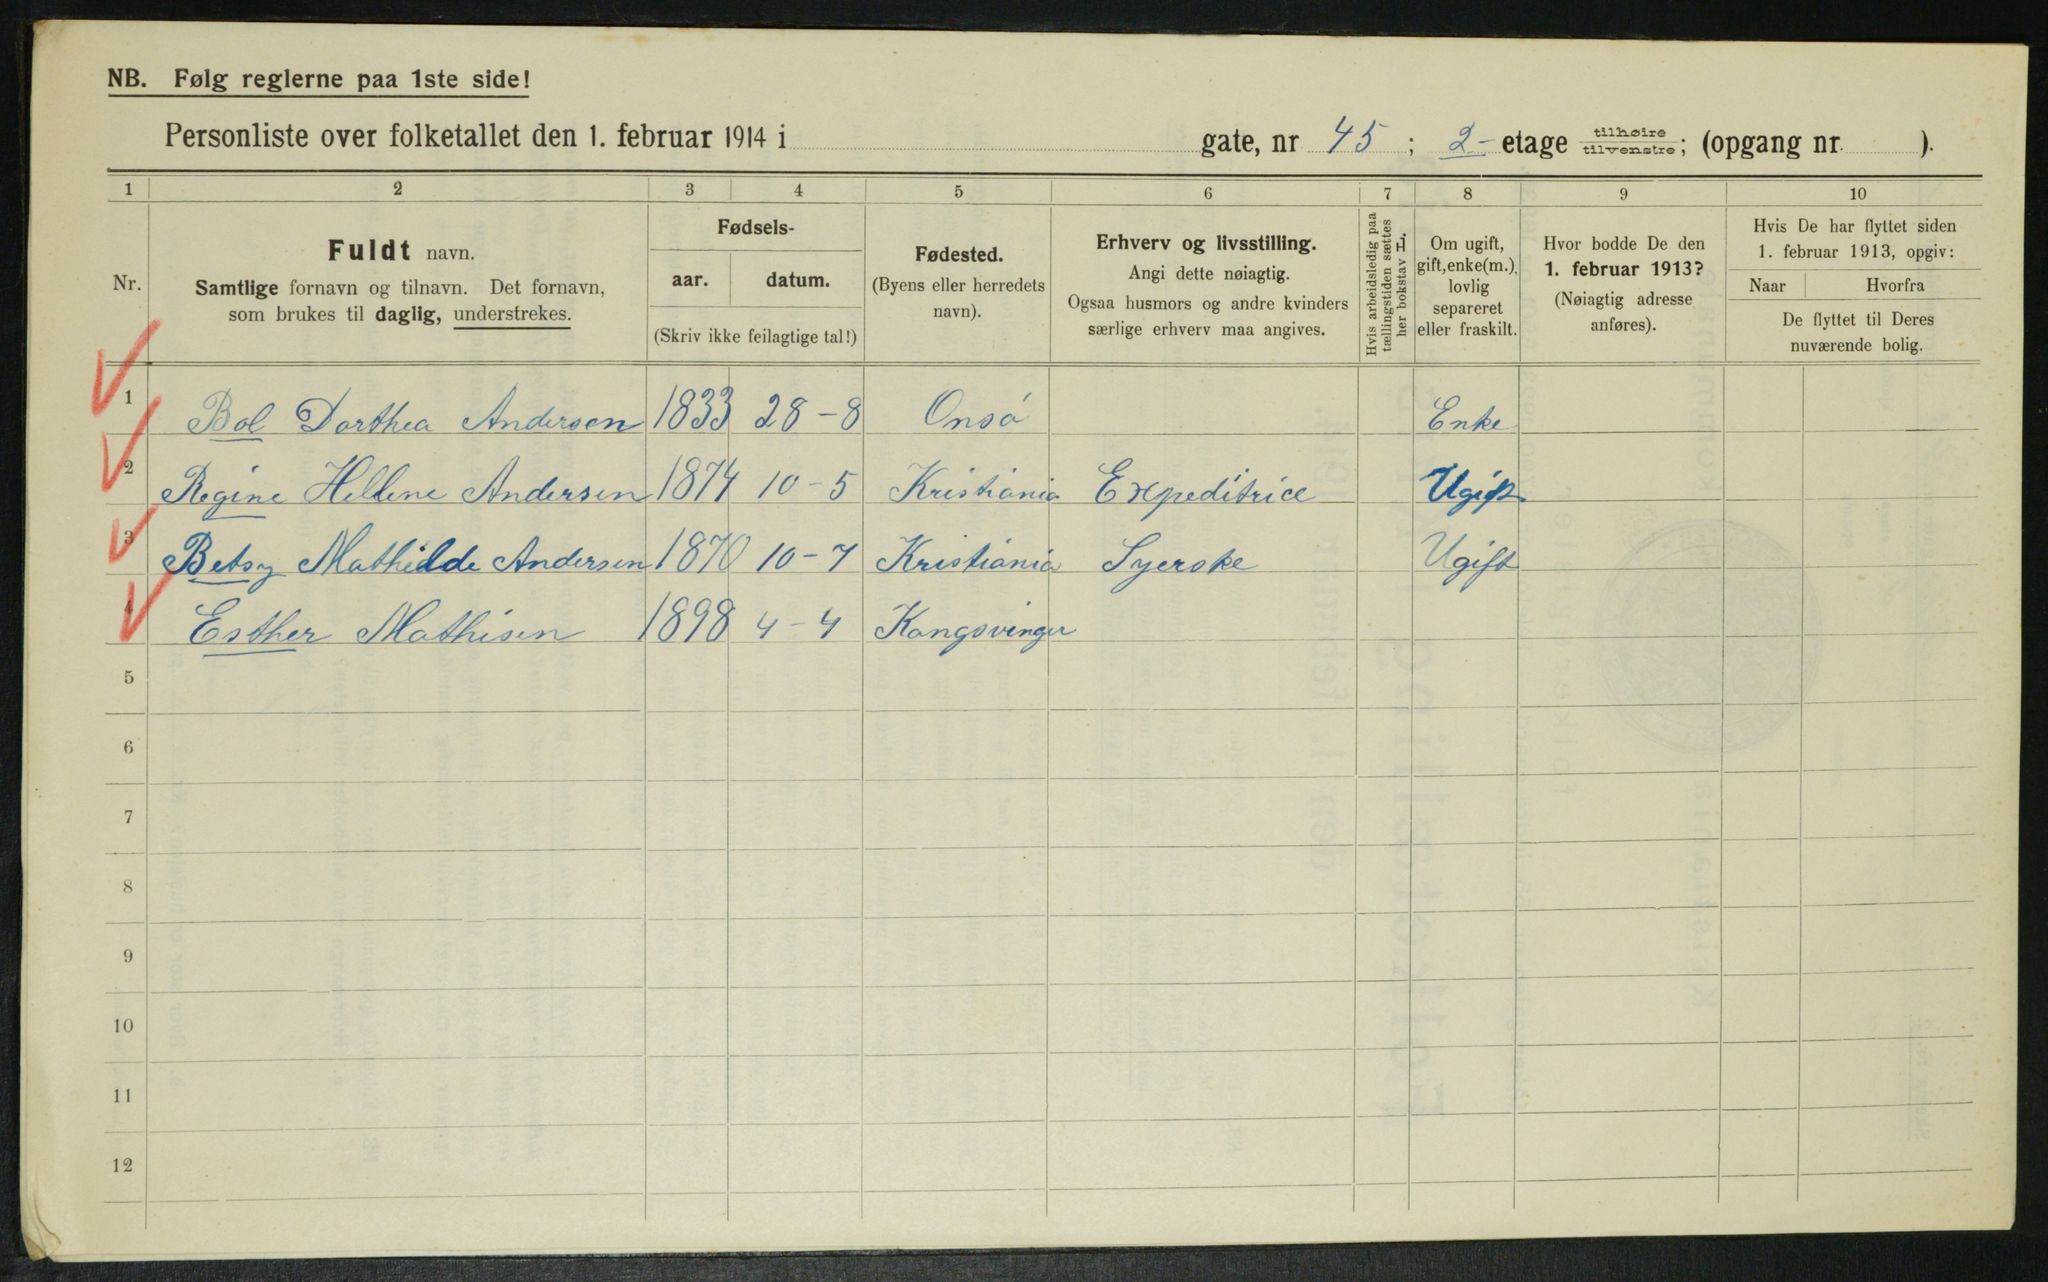 NB. Følg reglerne paa 1ste side!
Personliste over folketallet den 1. februar 1914 i gate, nr 45 ; 2- etage tilhøire tilvenstre; (opgang nr. ).
1 2 3 4 5 6 7 8 9 10
Nr.
Fuldt navn.
Samtlige fornavn og tilnavn. Det fornavn,
som brukes til daglig, understrekes.
Fødsels-
aar. datum.
(Skriv ikke feilagtige tal!)
Fødested.
(Byens eller herredets
navn).
Erhverv og livsstilling.
Angi dette nøiagtig.
Ogsaa husmors og andre kvinders
særlige erhverv maa angives.
Hvis arbeidsledig paa
tællingstiden sættes
her bokstav L.
Om ugift,
gift, enke(m.),
lovlig
separeret
eller fraskilt.
Hvor bodde De den
1. februar 1913?
(Nøiagtig adresse
anføres).
Hvis De har flyttet siden
1. februar 1913, opgiv:
Naar Hvorfra
De flyttet til Deres
nuværende bolig.
1 Bol Dorthea Andersen 1833 28-8 Onsó Enke
2 Regine Hellene Andersen 1874 10-5 Kristiania Expeditrice Ugift
3 Betsy Mathilde Andersen 1870 10-7 Kristiania Syerske Ugift
4 Esther Mathisen 1898 4-4 Kongsvinger
5
6
7
8
9
10
11
12